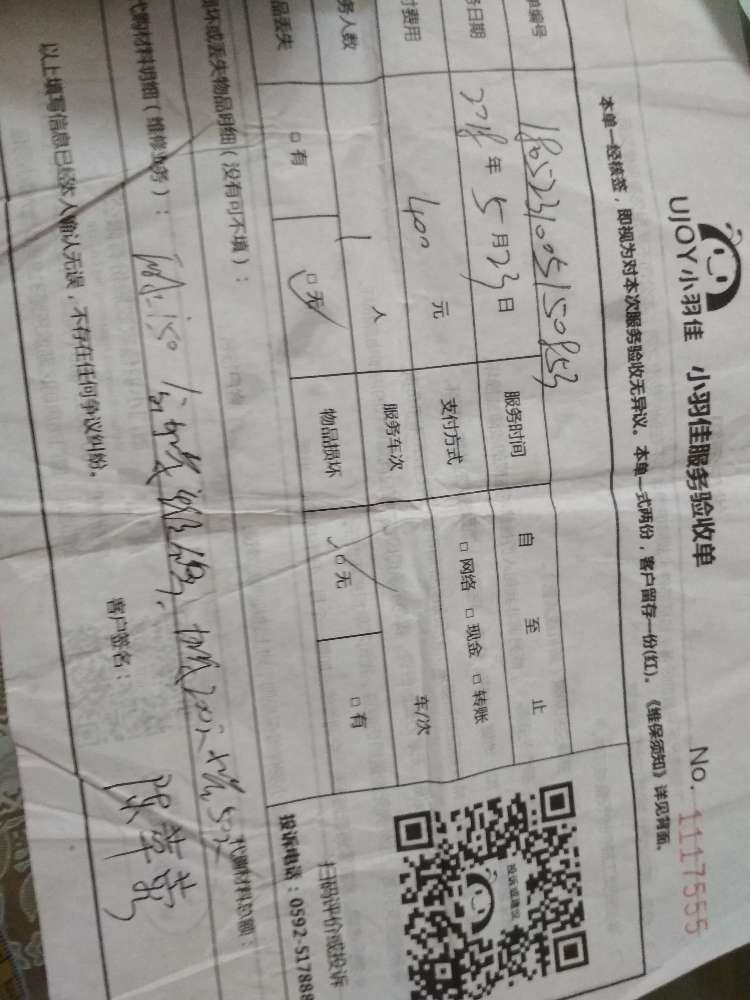 UJOY小羽佳 小羽佳服务验收单 No. 1117555
本单一经核签，即视为对本次服务验收无异议。本单一式两份，客户留存一份(红)。《维保须知》详见背面。
单编号 1805231005150853 服务时间 自 至 止
务日期 2018年5月23日 支付方式 □网络 □现金 □转账
付费用 400 元 服务车次 车/次
务人数 1 人 物品损坏 □无 □有
品丢失 □有 □无
投诉或建议
扫码评价或投诉
投诉电话：0592-517888
损坏或丢失物品明细（没有可不填）：
代购材料明细（维修业务）： 代购材料总额：
以上填写信息已经本人确认无误，不存在任何争议纠纷。
客户签名：